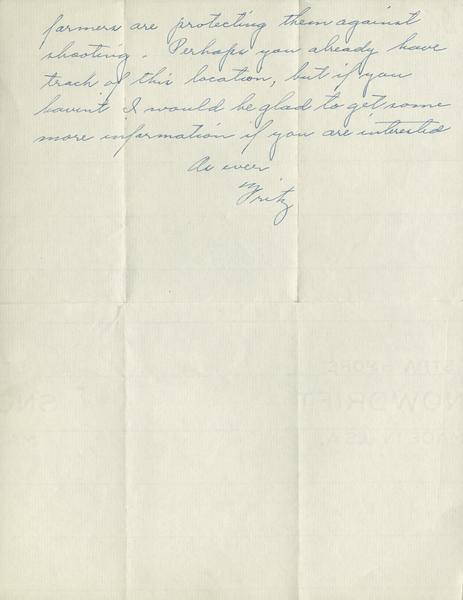 farmers are protecting them against
shooting. Perhaps you already have
track of this location, but if you
havint I would be glad to get some
more information if you are interested
As ever
Fritz